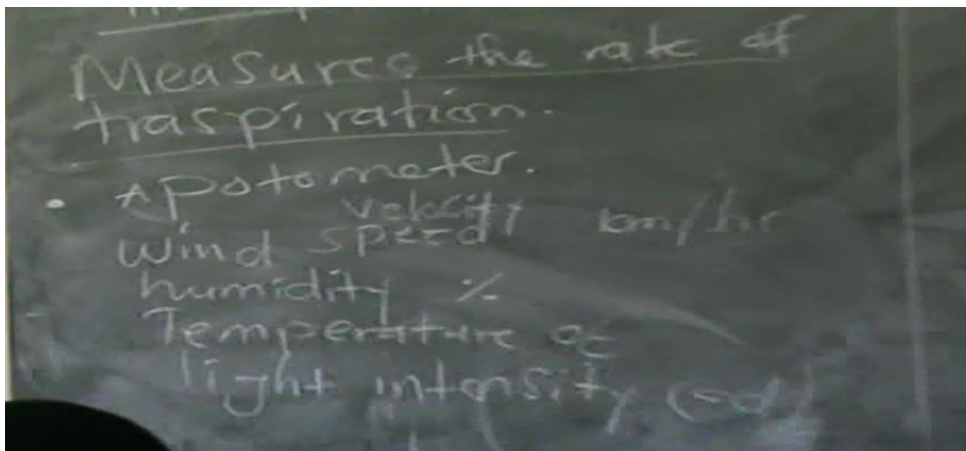 Measures the rate of
traspiration.
• A potometer.
velocity
Wind speed km/hr
humidity %
Temperature oc
light intensity (cd)